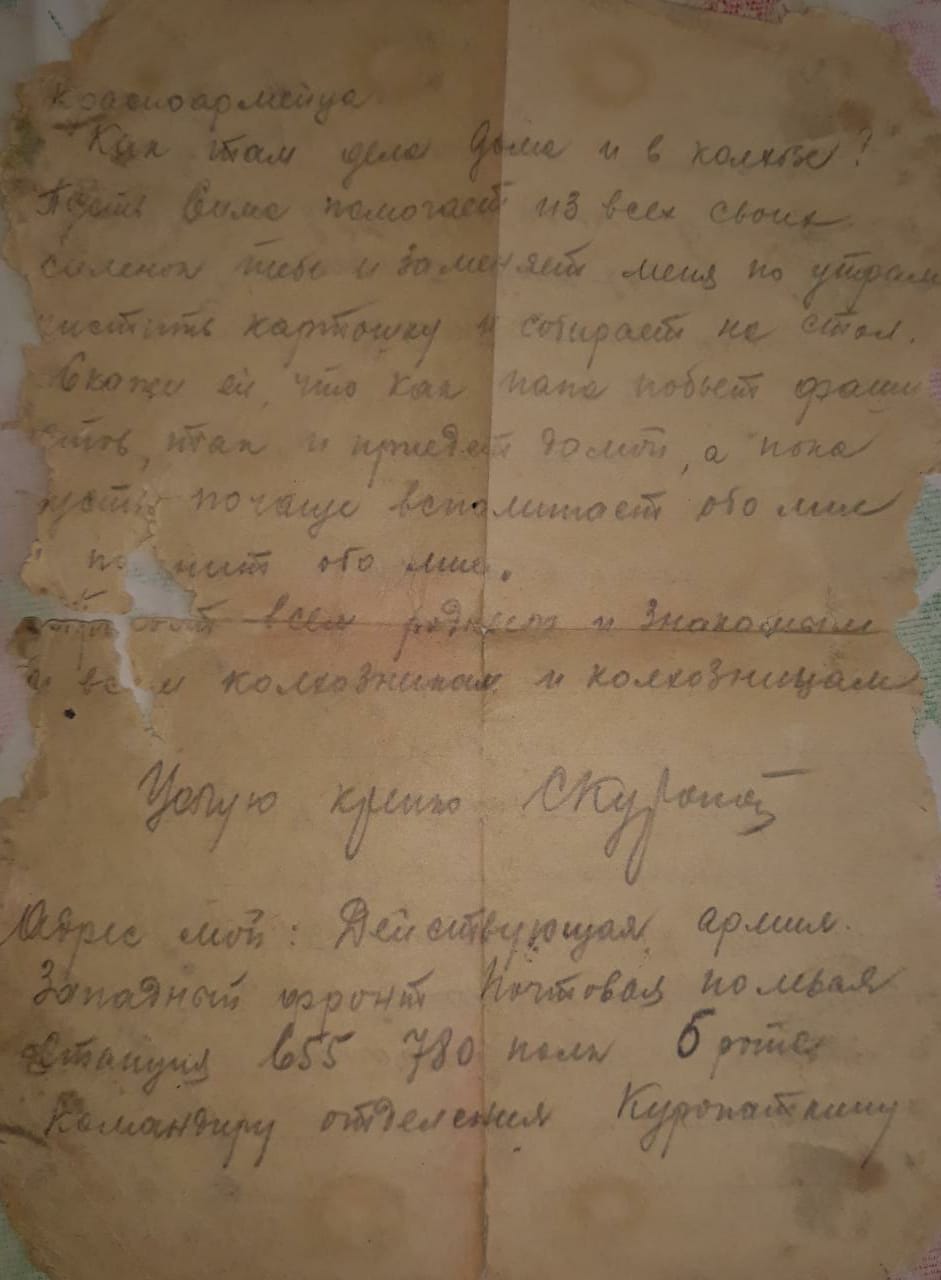 Красноармейца
Как там дела дома и в колхозе?
Пусть Сима помогает из всех своих
силенок тебе и заменяет меня по утрам
чистить картошку и собирает на стол.
Скажи ей, что как папа побьет фаши
стов, так и приедет домой, а пока
пусть почаще вспоминает обо мне
помнит обо мне.
всем родным и знакомым
и всем колхозникам и колхозницам
Целую крепко СКуропат
Адрес мой: Действующая армия.
Западный фронт Почтовая полевая
станция 655 780 полк 5 рота
Командиру отделения Куропаткину